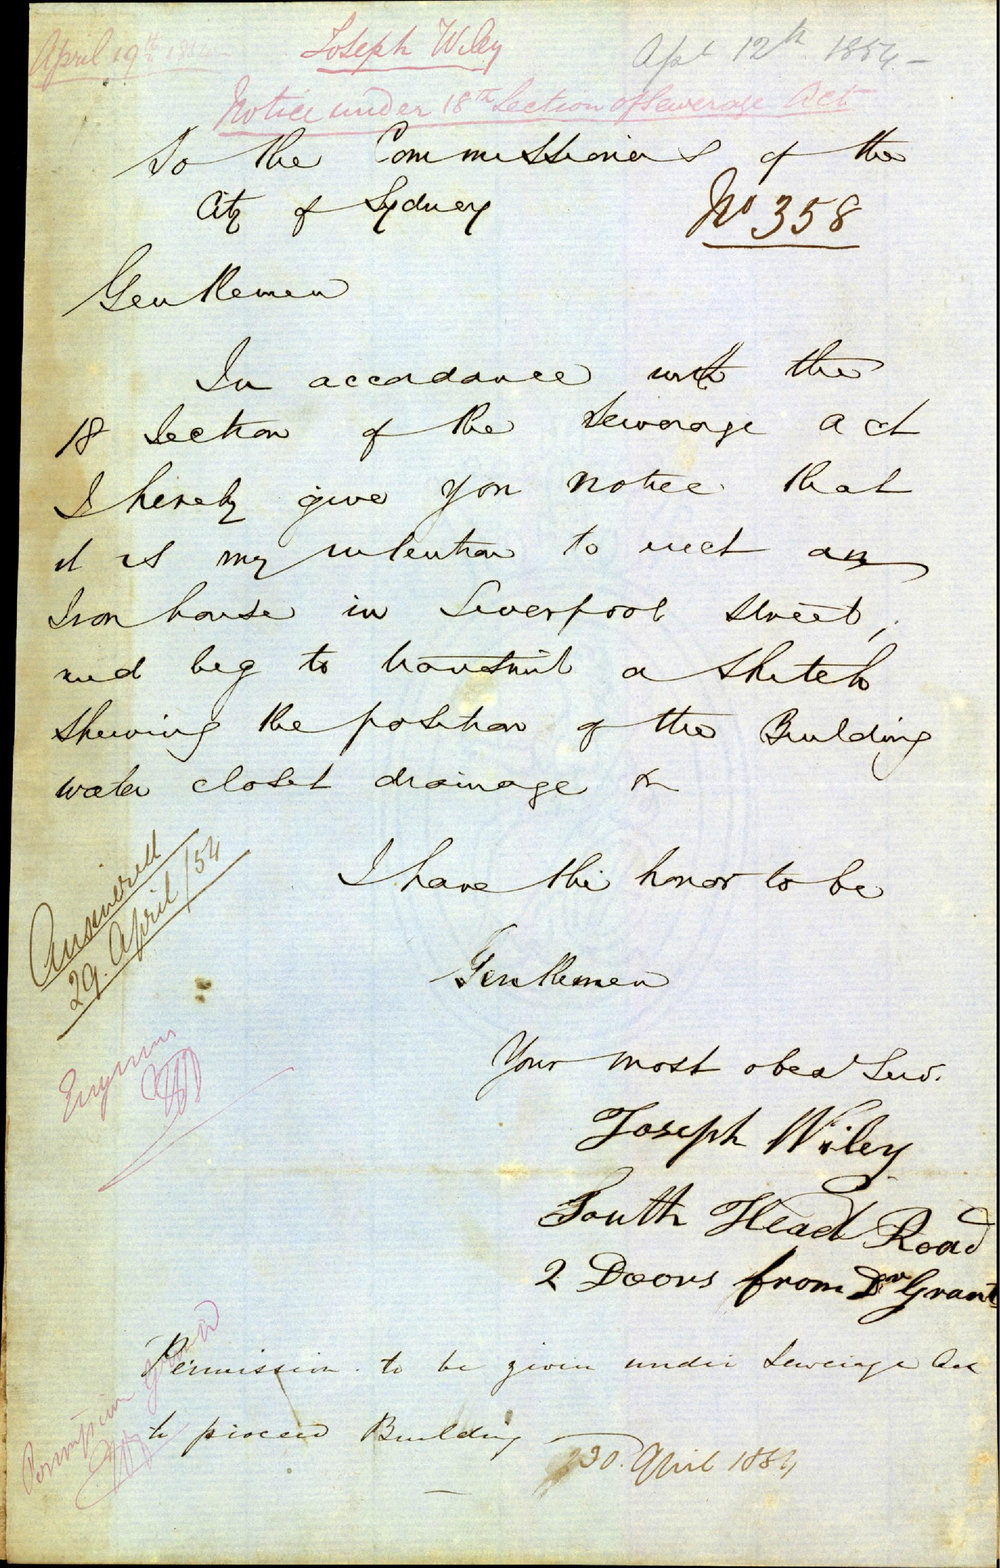 April 19th
Joseph Wiley
Apl 12th 1854.-
Notice under 18th Section of Sewerage Act
To the Commissioners of the
City of Sydney
No 358
Gentlemen
In accordance with the
18 Section of the Sewerage Act
I hereby give you notice that
it is my intention to erect an
Iron house in Liverpool Street,
and beg to transmit a sketch
shewing the position of the Building
water closet drainage &c
I have the honor to be
Gentlemen
Your most obed Serv.
Joseph Wiley
South Head Road
2 Doors from Dr Grant
Answered
29. April/54
Permission granted
Permission to be given under Sewerage Act
to proceed Building
20. April 1854